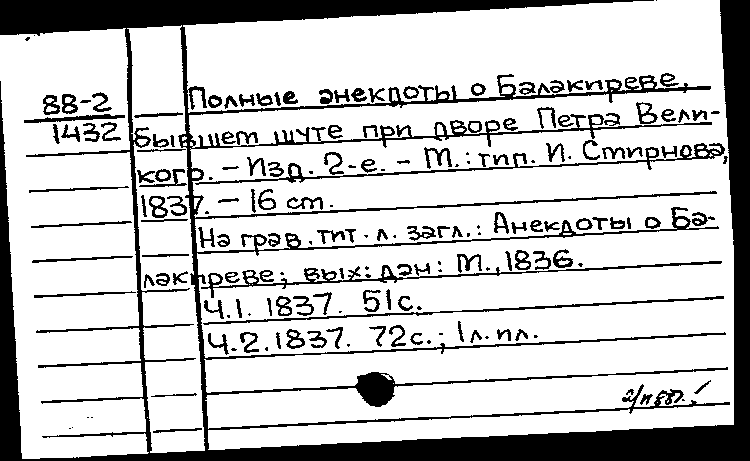 88-2
1432
Полные анекдоты о Балакиреве,
бывшем шуте при дворе Петра Вели-
кого. - Изд. 2-е. - М.: тип. И. Смирнова,
1837. - 16 см.
На грав. тит. л. загл.: Анекдоты о Ба-
лакиреве; вых. дан: М., 1836.
Ч.1. 1837. 51с.
Ч.2. 1837. 72с.; 1л. пл.